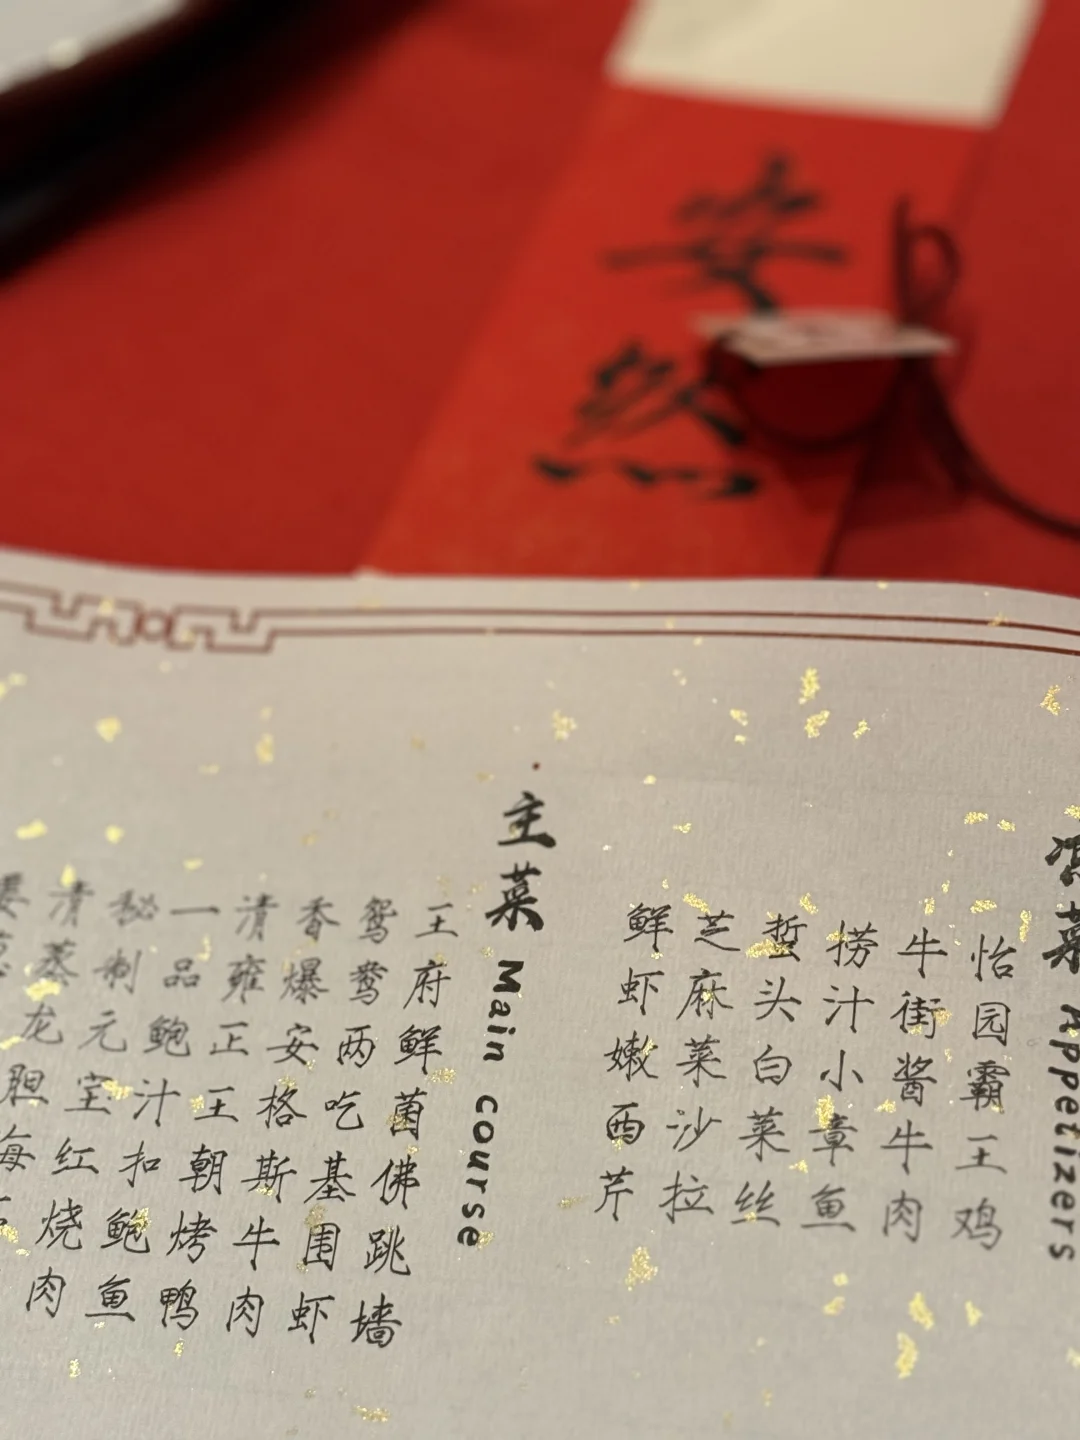 安然
凉菜 Appetizers
怡园霸王鸡
牛街酱牛肉
捞汁小章鱼
蜇头白菜丝
芝麻菜沙拉
鲜虾嫩西芹
主菜 Main course
王府鲜菌佛跳墙
鸳鸯两吃基围虾
香爆安格斯牛肉
清雍正王朝烤鸭
一品鲍汁扣鲍鱼
秘制元宝红烧肉
清蒸龙胆海